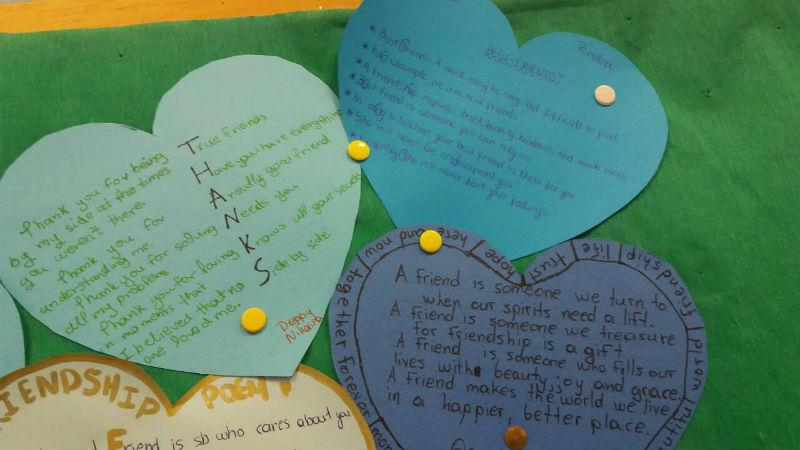 Thank you for being
by my side at the times
you weren't there.
Thank you for
understanding me.
Thank you for solving
all my problems
Thank you for loving
in moments that
I believed that no
one loved me.
True friends
Have you have everything
A really good friend
Needs you
Knows all your secrets
Side by side
Deppy
Nikolaidou
BEST FRIENDS!
Penelope
* Best friends. A word easy to say but difficult to find
* For example, we are best friends
* A friendship requires trust, honesty, kindness and much more
* Best friend is someone you can rely on
* In any situation your best friend is there for you
* She will never disappoint you
will never hurt your feelings
together forever
here and now
hope
trust
life
friendship
world
A friend is someone we turn to
when our spirits need a lift.
A friend is someone we treasure
for friendship is a gift
A friend is someone who fills our
lives with beauty, joy and grace.
A friend makes the world we live
in a happier, better place.
FRIENDSHIP POEM
Friend is sb who cares about you